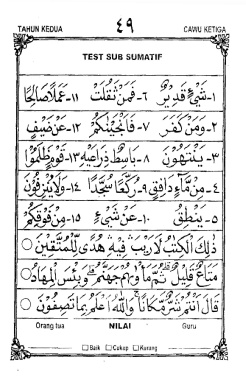 TAHUN KEDUA ٤٩ CAWU KETIGA
TEST SUB SUMATIF
١- شَيْءٍ قَدِيْرٌ ٦- فَمَنْ ثَقُلَتْ ١١- عَمَلًا صَالِحًا
٢- وَمَنْ كَفَرَ ٧- فَأَنْجَيْنَاكُمْ ١٢- عَنْ ضَيْفِ
٣- يَنْتَهُوْنَ ٨- بَاسِطٌ ذِرَاعَيْهِ ١٣- قَوْمٍ ظَلَمُوْا
٤- مِنْ مَّاءٍ دَافِقٍ ٩- رُكَّعًا سُجَّدًا ١٤- وَلَا يُنْزِفُوْنَ
٥- يَنْطِقُ ١٠- عَنْ شَيْءٍ ١٥- مِنْ فَوْقِكُمْ
ذٰلِكَ الْكِتٰبُ لَا رَيْبَ فِيْهِ هُدًى لِّلْمُتَّقِيْنَ
مَتَاعٌ قَلِيْلٌ ثُمَّ مَأْوٰىهُمْ جَهَنَّمُ وَبِئْسَ الْمِهَادُ
قَالَ أَنْتُمْ شَرٌّ مَّكَانًا وَاللّٰهُ أَعْلَمُ بِمَا تَصِفُوْنَ
Orang tua NILAI Guru
Baik Cukup Kurang